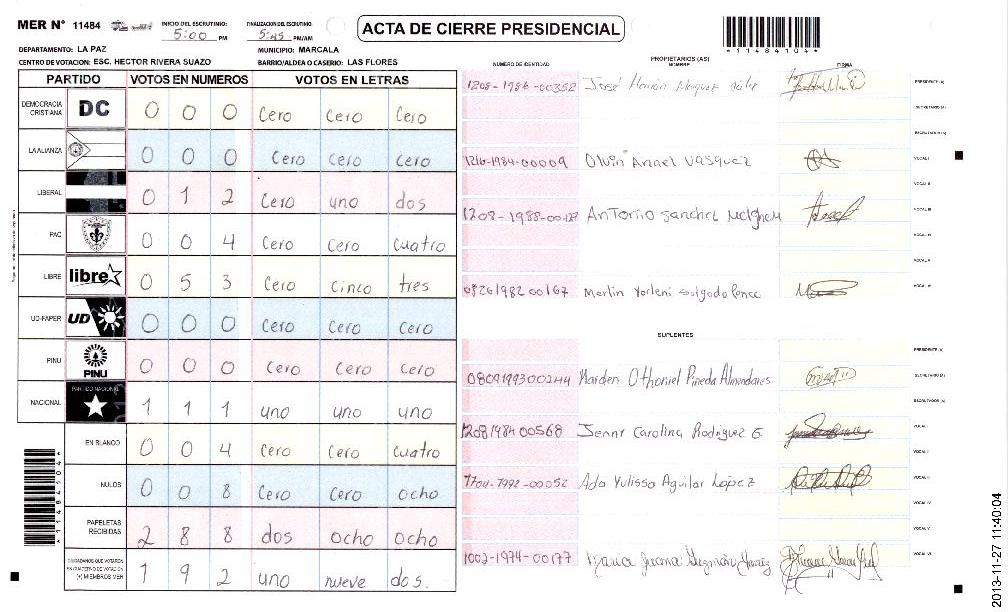 MER N° 11484
INICIO DEL ESCRUTINIO: 5:00 PM
FINALIZACION DEL ESCRUTINIO: 5:45 PM/AM
ACTA DE CIERRE PRESIDENCIAL
*11484104*
DEPARTAMENTO: LA PAZ MUNICIPIO: MARCALA
CENTRO DE VOTACION: ESC. HECTOR RIVERA SUAZO BARRIO/ALDEA O CASERIO: LAS FLORES
PARTIDO VOTOS EN NUMEROS VOTOS EN LETRAS
DEMOCRACIA CRISTIANA DC 0 0 0 Cero Cero Cero
LA ALIANZA 0 0 0 Cero Cero Cero
LIBERAL 0 1 2 Cero uno dos
PAC 0 0 4 Cero Cero cuatro
LIBRE libre 0 5 3 Cero Cinco tres
UD-FAPER UD 0 0 0 Cero Cero Cero
PINU PINU 0 0 0 Cero Cero Cero
NACIONAL PARTIDO NACIONAL 1 1 1 uno uno uno
EN BLANCO 0 0 4 Cero Cero Cuatro
NULOS 0 0 8 Cero Cero ocho
PAPELETAS RECIBIDAS 2 8 8 dos ocho ocho
CIUDADANOS QUE VOTARON EN CUADERNO DE VOTACION (+) MIEMBROS MER 1 9 2 uno nueve dos.
PROPIETARIOS (AS)
NUMERO DE IDENTIDAD NOMBRE FIRMA
1208-1986-00352 José PRESIDENTE (A)
SECRETARIO (A)
ESCRUTADOR (A)
1216-1984-00009 Olvin Anael Vasquez VOCAL I
VOCAL II
1208-1988-00127 Antonio Sanchez VOCAL III
VOCAL IV
VOCAL V
0826198200167 Merlin Yorleni Salgado Ponce VOCAL VI
SUPLENTES
PRESIDENTE (A)
0809199300244 Marden Othoniel Pineda Almendares SECRETARIO (A)
ESCRUTADOR (A)
1208198400568 Jenny Carolina Rodriguez G. VOCAL I
VOCAL II
1704-1992-00052 Ada Yulissa Aguilar López VOCAL III
VOCAL IV
VOCAL V
1002-1974-00177 Juana Guzmán VOCAL VI
*11484104*
2013-11-27 11:40:04